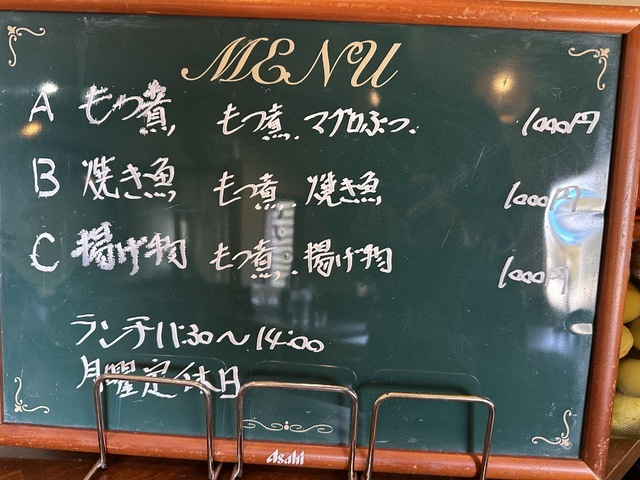 MENU
A もつ煮 もつ煮、マグロぶつ、 1000円
B 焼き魚 もつ煮、焼き魚 1000円
C 揚げ物 もつ煮、揚げ物 1000円
ランチ11:30〜14:00
月曜定休日
Asahi